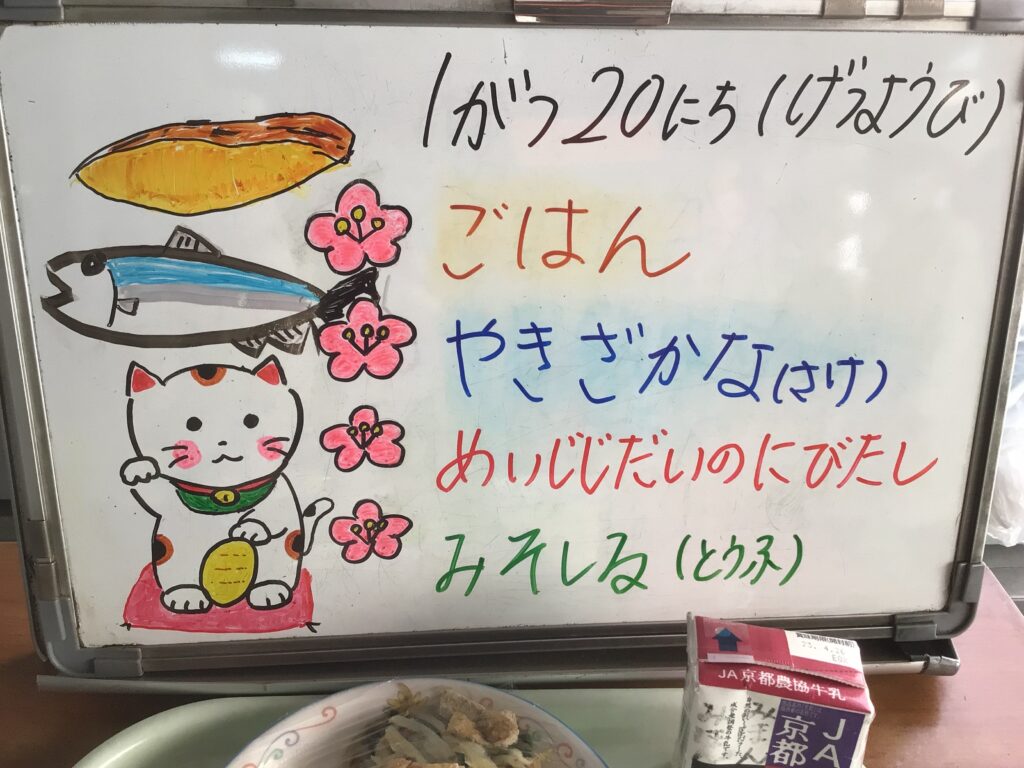 1がつ20にち(げつようび)
ごはん
やきざかな(さけ)
めいじじだいのにびたし
みそしる(とうふ)
JA京都農協牛乳
JA
京都